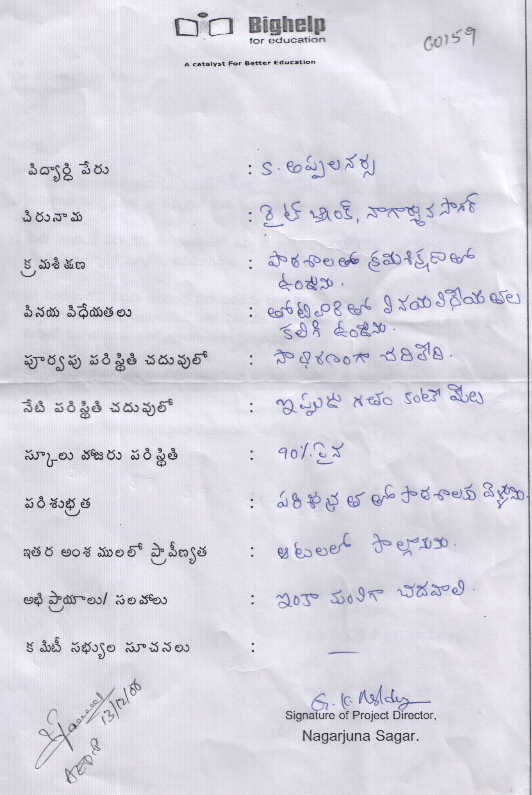 Bighelp
for education
A catalyst For Better Education
G0159
విద్యార్థి పేరు : కె. అప్పలనర్స
చిరునామ : రైట్ బ్యాంక్, నాగార్జున సాగర్
క్రమశిక్షణ : పాఠశాలలో క్రమశిక్షణతో
ఉండును.
వినయ విధేయతలు : తోటివారితో వినయవిధేయతలు
కలిగి ఉండును.
పూర్వపు పరిస్థితి చదువులో : సాధారణంగా చదివేది.
నేటి పరిస్థితి చదువులో : ఇప్పుడు గతం కంటే మేలు
స్కూలు హాజరు పరిస్థితి : 90% పైన
పరిశుభ్రత : పరిశుభ్రతతో పాఠశాలకు వెళ్ళును.
ఇతర అంశములలో ప్రావీణ్యత : ఆటలలో పాల్గొనును.
అభిప్రాయాలు/ సలహాలు : ఇంకా మంచిగా చదవాలి.
కమిటీ సభ్యుల సూచనలు : —
G. K. Reddy
Signature of Project Director,
Nagarjuna Sagar.
13/12/06